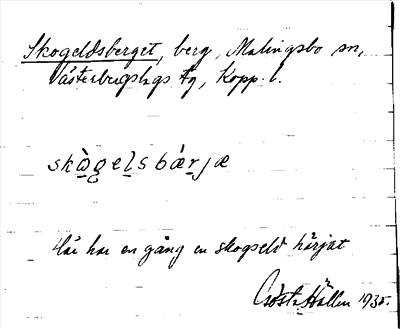 Skogeldsberget, berg, Malingsbo sn,
Västerbergslags tg, Kopp. l.
skògelsbærjæ
Här har en gång en skogseld härjat
Gösta Hallin 1935.